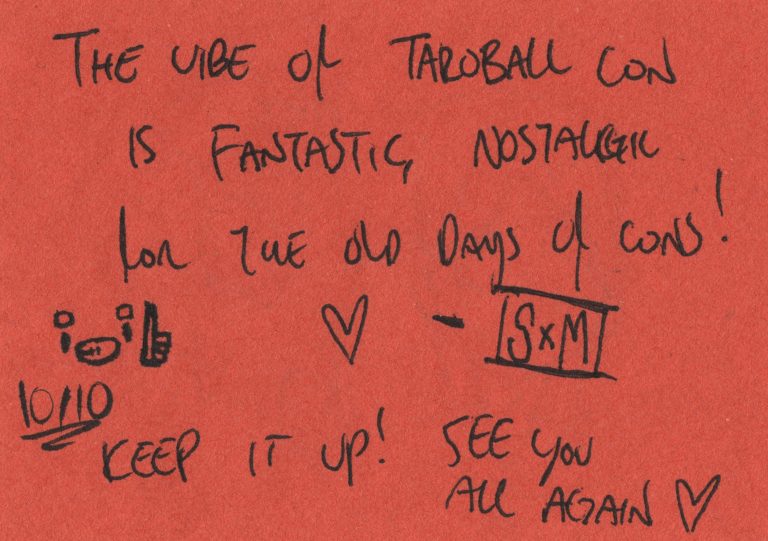 THE VIBE OF TAROBALL CON
IS FANTASTIC, NOSTALGIC
FOR THE OLD DAYS OF CONS!
♡ - SXM
10/10
KEEP IT UP! SEE YOU
ALL AGAIN ♡